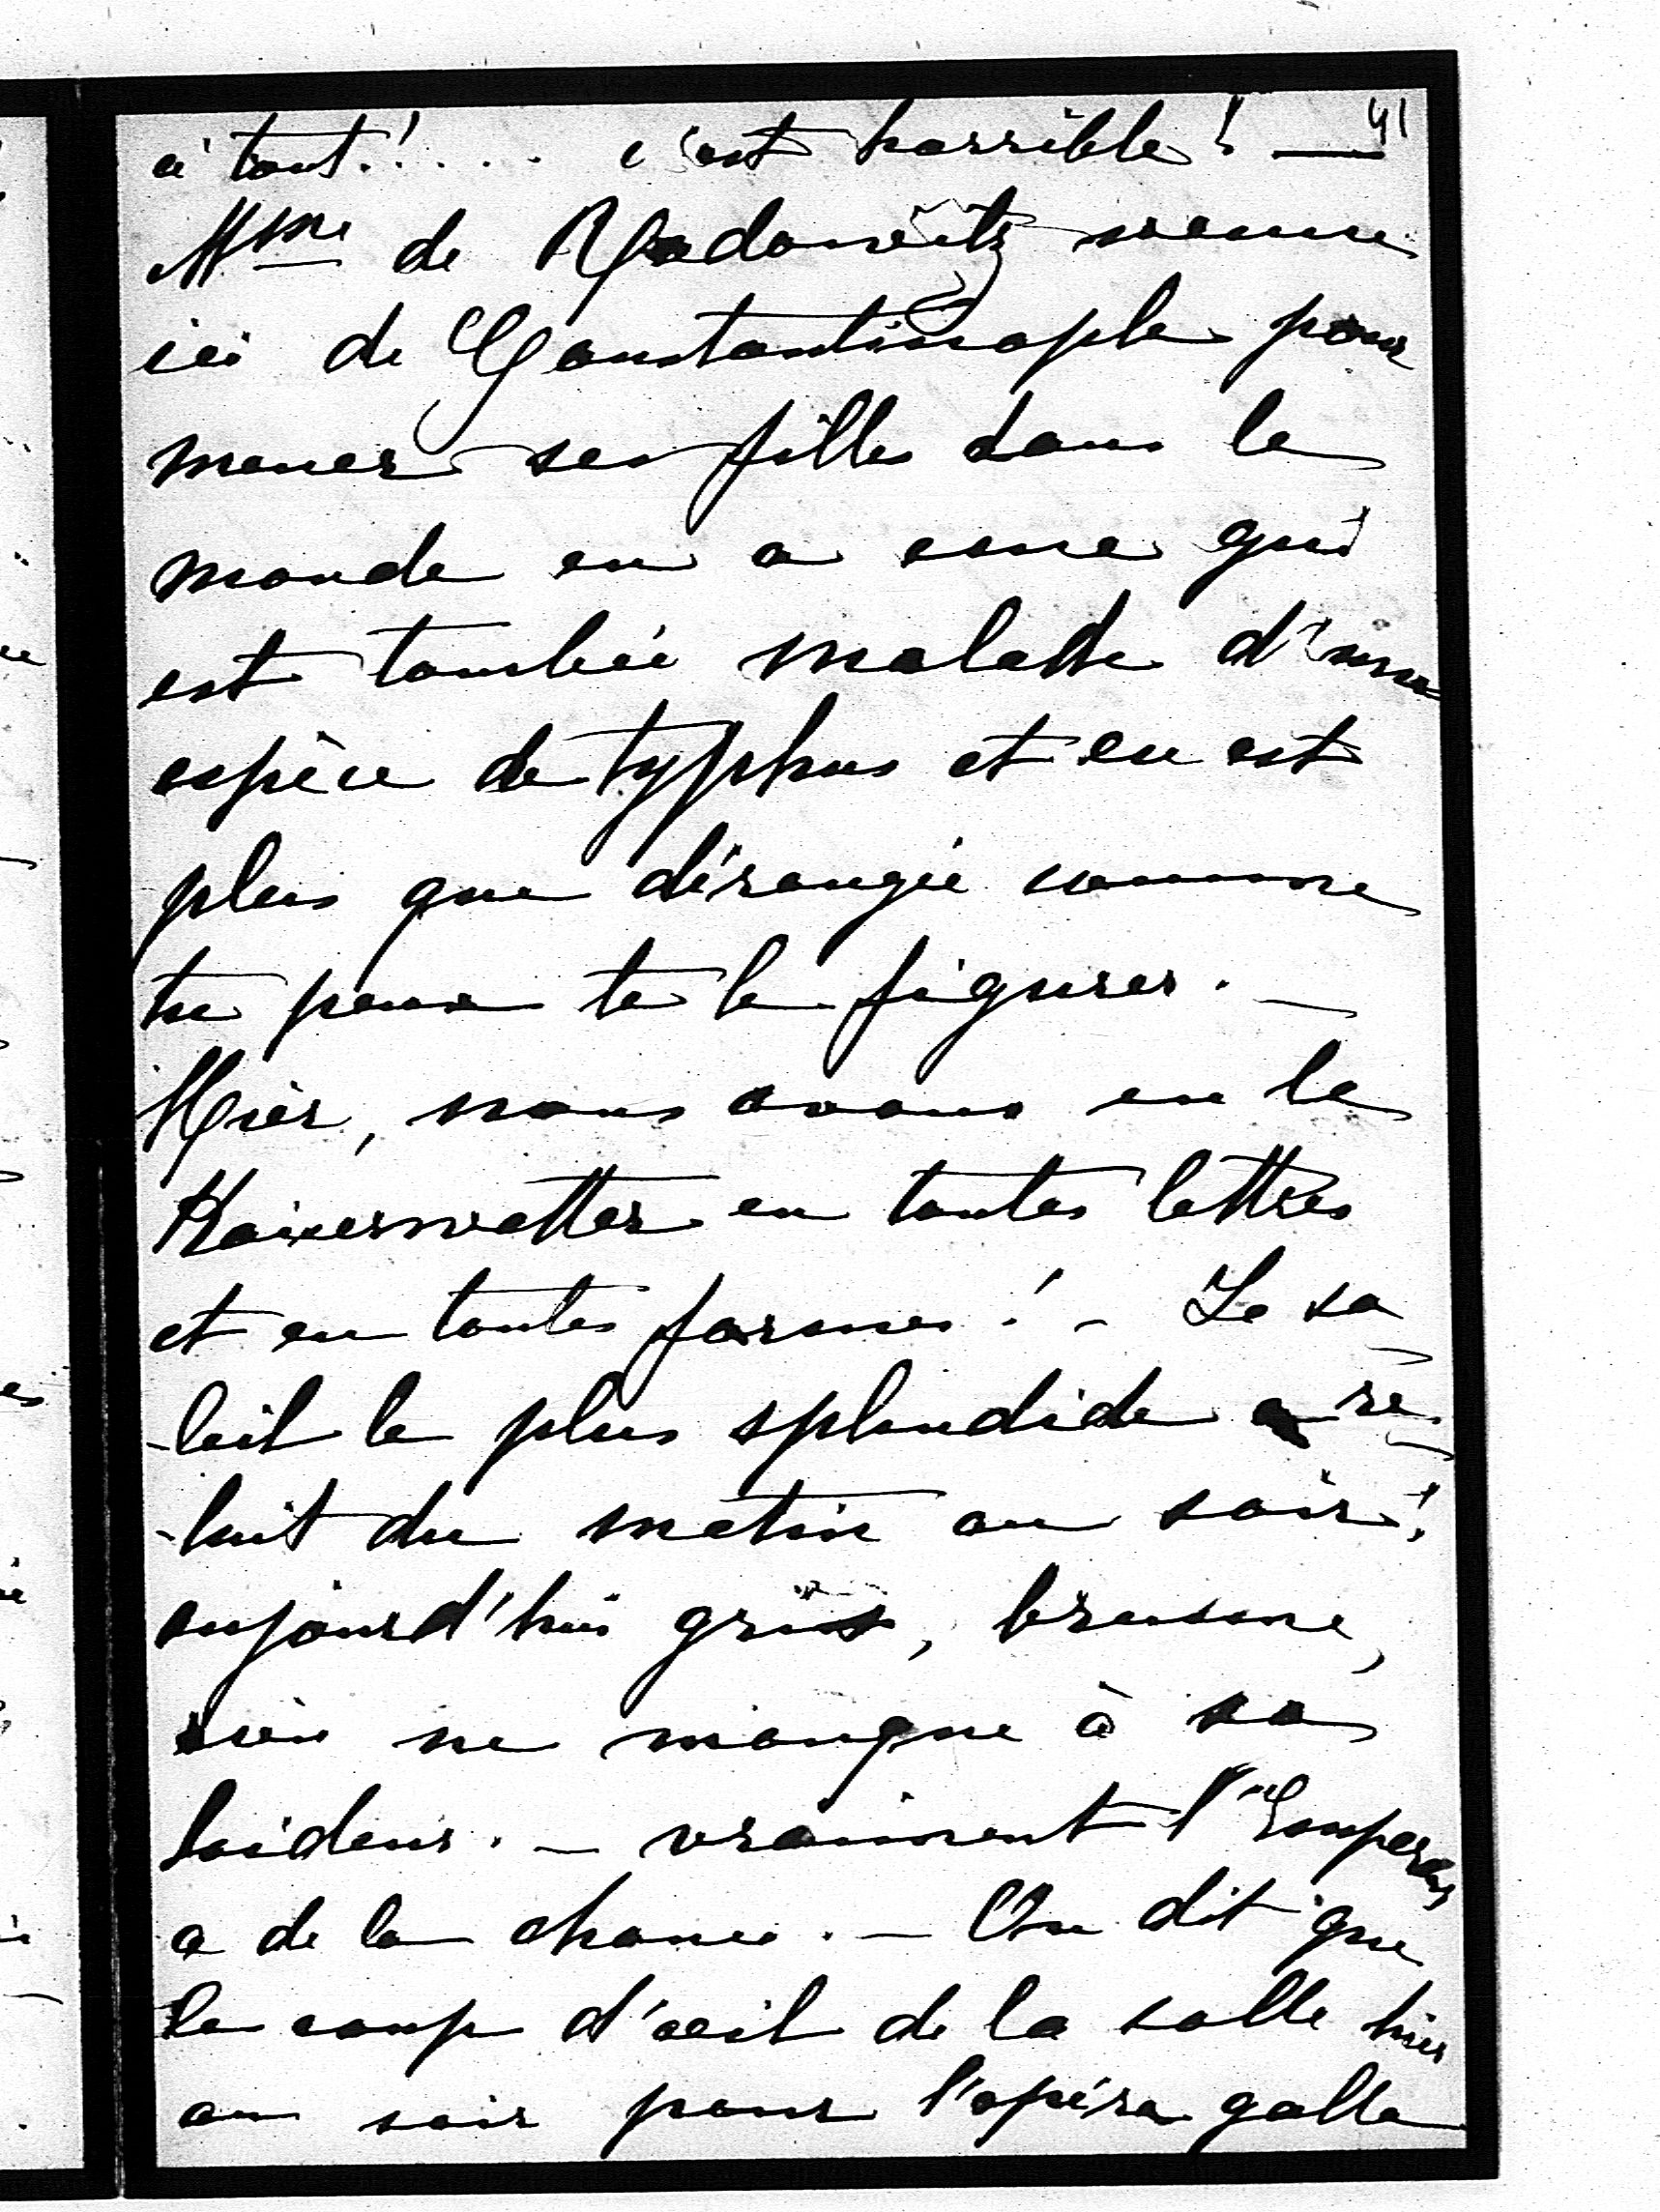 41
à tout!.... c'est horrible! —
Mme de Radowitz venue
ici de Constantinople pour
mener ses filles dans le
monde en a une qui
est tombée malade d'une
espèce de typhus et en est
plus que dérangée comme
tu peux te le figurer. —
Hier, nous avons eu le
Kaiserwetter en toutes lettres
et en toutes formes! - Le so
-leil le plus splendide a re-
-luit du matin au soir!
aujourd'hui gris, brume,
rien ne manque à sa
laideur. — vraiment l'Empereur
a de la chance. — On dit que
le coup d'oeil de la salle hier
au soir pour l'opéra galla